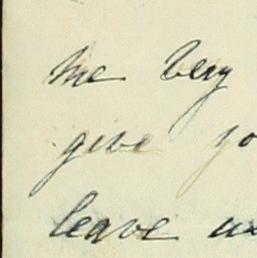 me very
give yo
leave